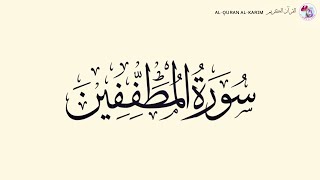 AL-QURAN AL-KARIM القرآن الكريم
سُورَةُ المُطَفِّفِين